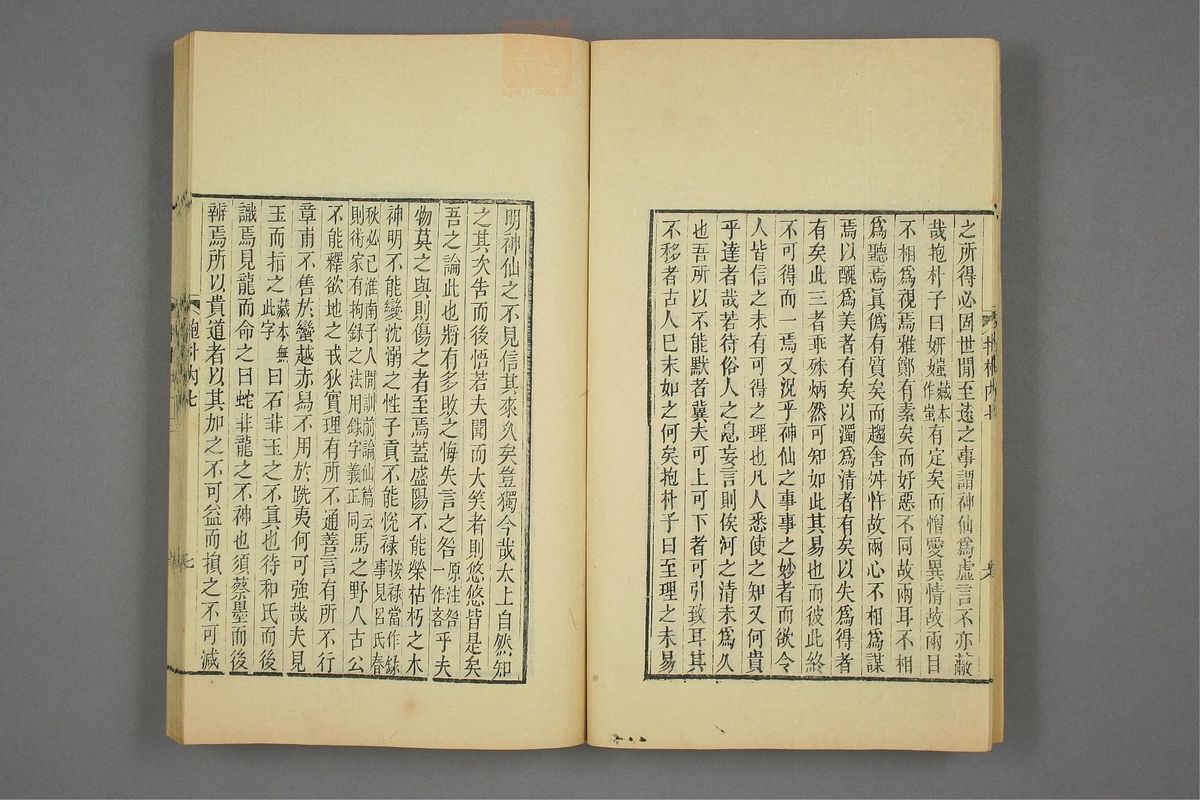 之所得必固世閒至遠之事謂神仙爲虛言不亦蔽
哉抱朴子曰妍媸藏本作蚩有定矣而憎愛異情故兩目
不相爲視焉雅鄭有素矣而好惡不同故兩耳不相
爲聽焉眞僞有質矣而趨舍舛忤故兩心不相爲謀
焉以醜爲美者有矣以濁爲清者有矣以失爲得者
有矣此三者乖殊炳然可知如此其易也而彼此終
不可得而一焉又況乎神仙之事事之妙者而欲令
人皆信之未有可得之理也凡人悉使之知又何貴
乎達者哉若待俗人之息妄言則俟河之清未爲久
也吾所以不能默者冀夫可上可下者可引致耳其
不移者古人已末如之何矣抱朴子曰至理之未易
明神仙之不見信其來久矣豈獨今哉太上自然知
之其次告而後悟若夫聞而大笑者則悠悠皆是矣
吾之論此也將有多敗之悔失言之咎原注咎一作吝乎夫
物莫之與則傷之者至焉蓋盛陽不能榮枯朽之木
神明不能變沈溺之性子貢不能悅祿按祿當作錄事見呂氏春
秋必己淮南子人閒訓前論仙篇云則術家有拘錄之法用錄字義正同馬之野人古公
不能釋欲地之戎狄實理有所不通善言有所不行
章甫不售於蠻越赤舄不用於跣夷何可強哉夫見
玉而指之藏本無此字曰石非玉之不真也待和氏而後
識焉見龍而命之曰蛇非龍之不神也須蔡墨而後
辨焉所以貴道者以其加之不可益而損之不可減
抱朴內七
七